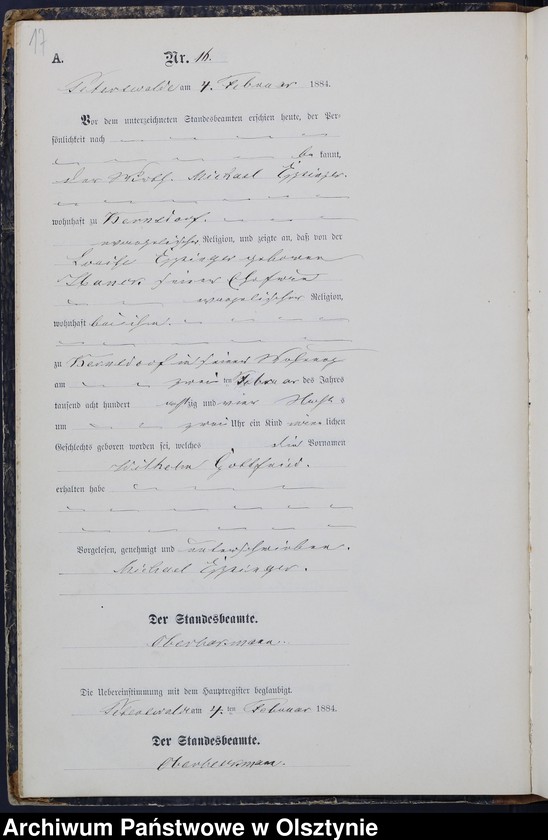 17
A. Nr. 16.
Peterswalde am 4. Februar 1884.
Vor dem unterzeichneten Standesbeamten erschien heute, der Per-
sönlichkeit nach
be kannt,
der Wirth Michael Eppinger.
wohnhaft zu Kernsdorf.
evangelischer Religion, und zeigte an, daß von der
Louise Eppinger geborenen
seiner Ehefrau
evangelischer Religion,
wohnhaft bei ihm.
zu Kernsdorf in seiner Wohnung
am zwei ten Februar des Jahres
tausend acht hundert achtzig und vier Nachts
um zwei Uhr ein Kind männlichen
Geschlechts geboren worden sei, welches die Vornamen
Wilhelm Gottfried.
erhalten habe
Vorgelesen, genehmigt und unterschrieben.
Michael Eppinger.
Der Standesbeamte.
Die Uebereinstimmung mit dem Hauptregister beglaubigt.
Peterswalde am 4. ten Februar 1884.
Der Standesbeamte.
Archiwum Państwowe w Olsztynie